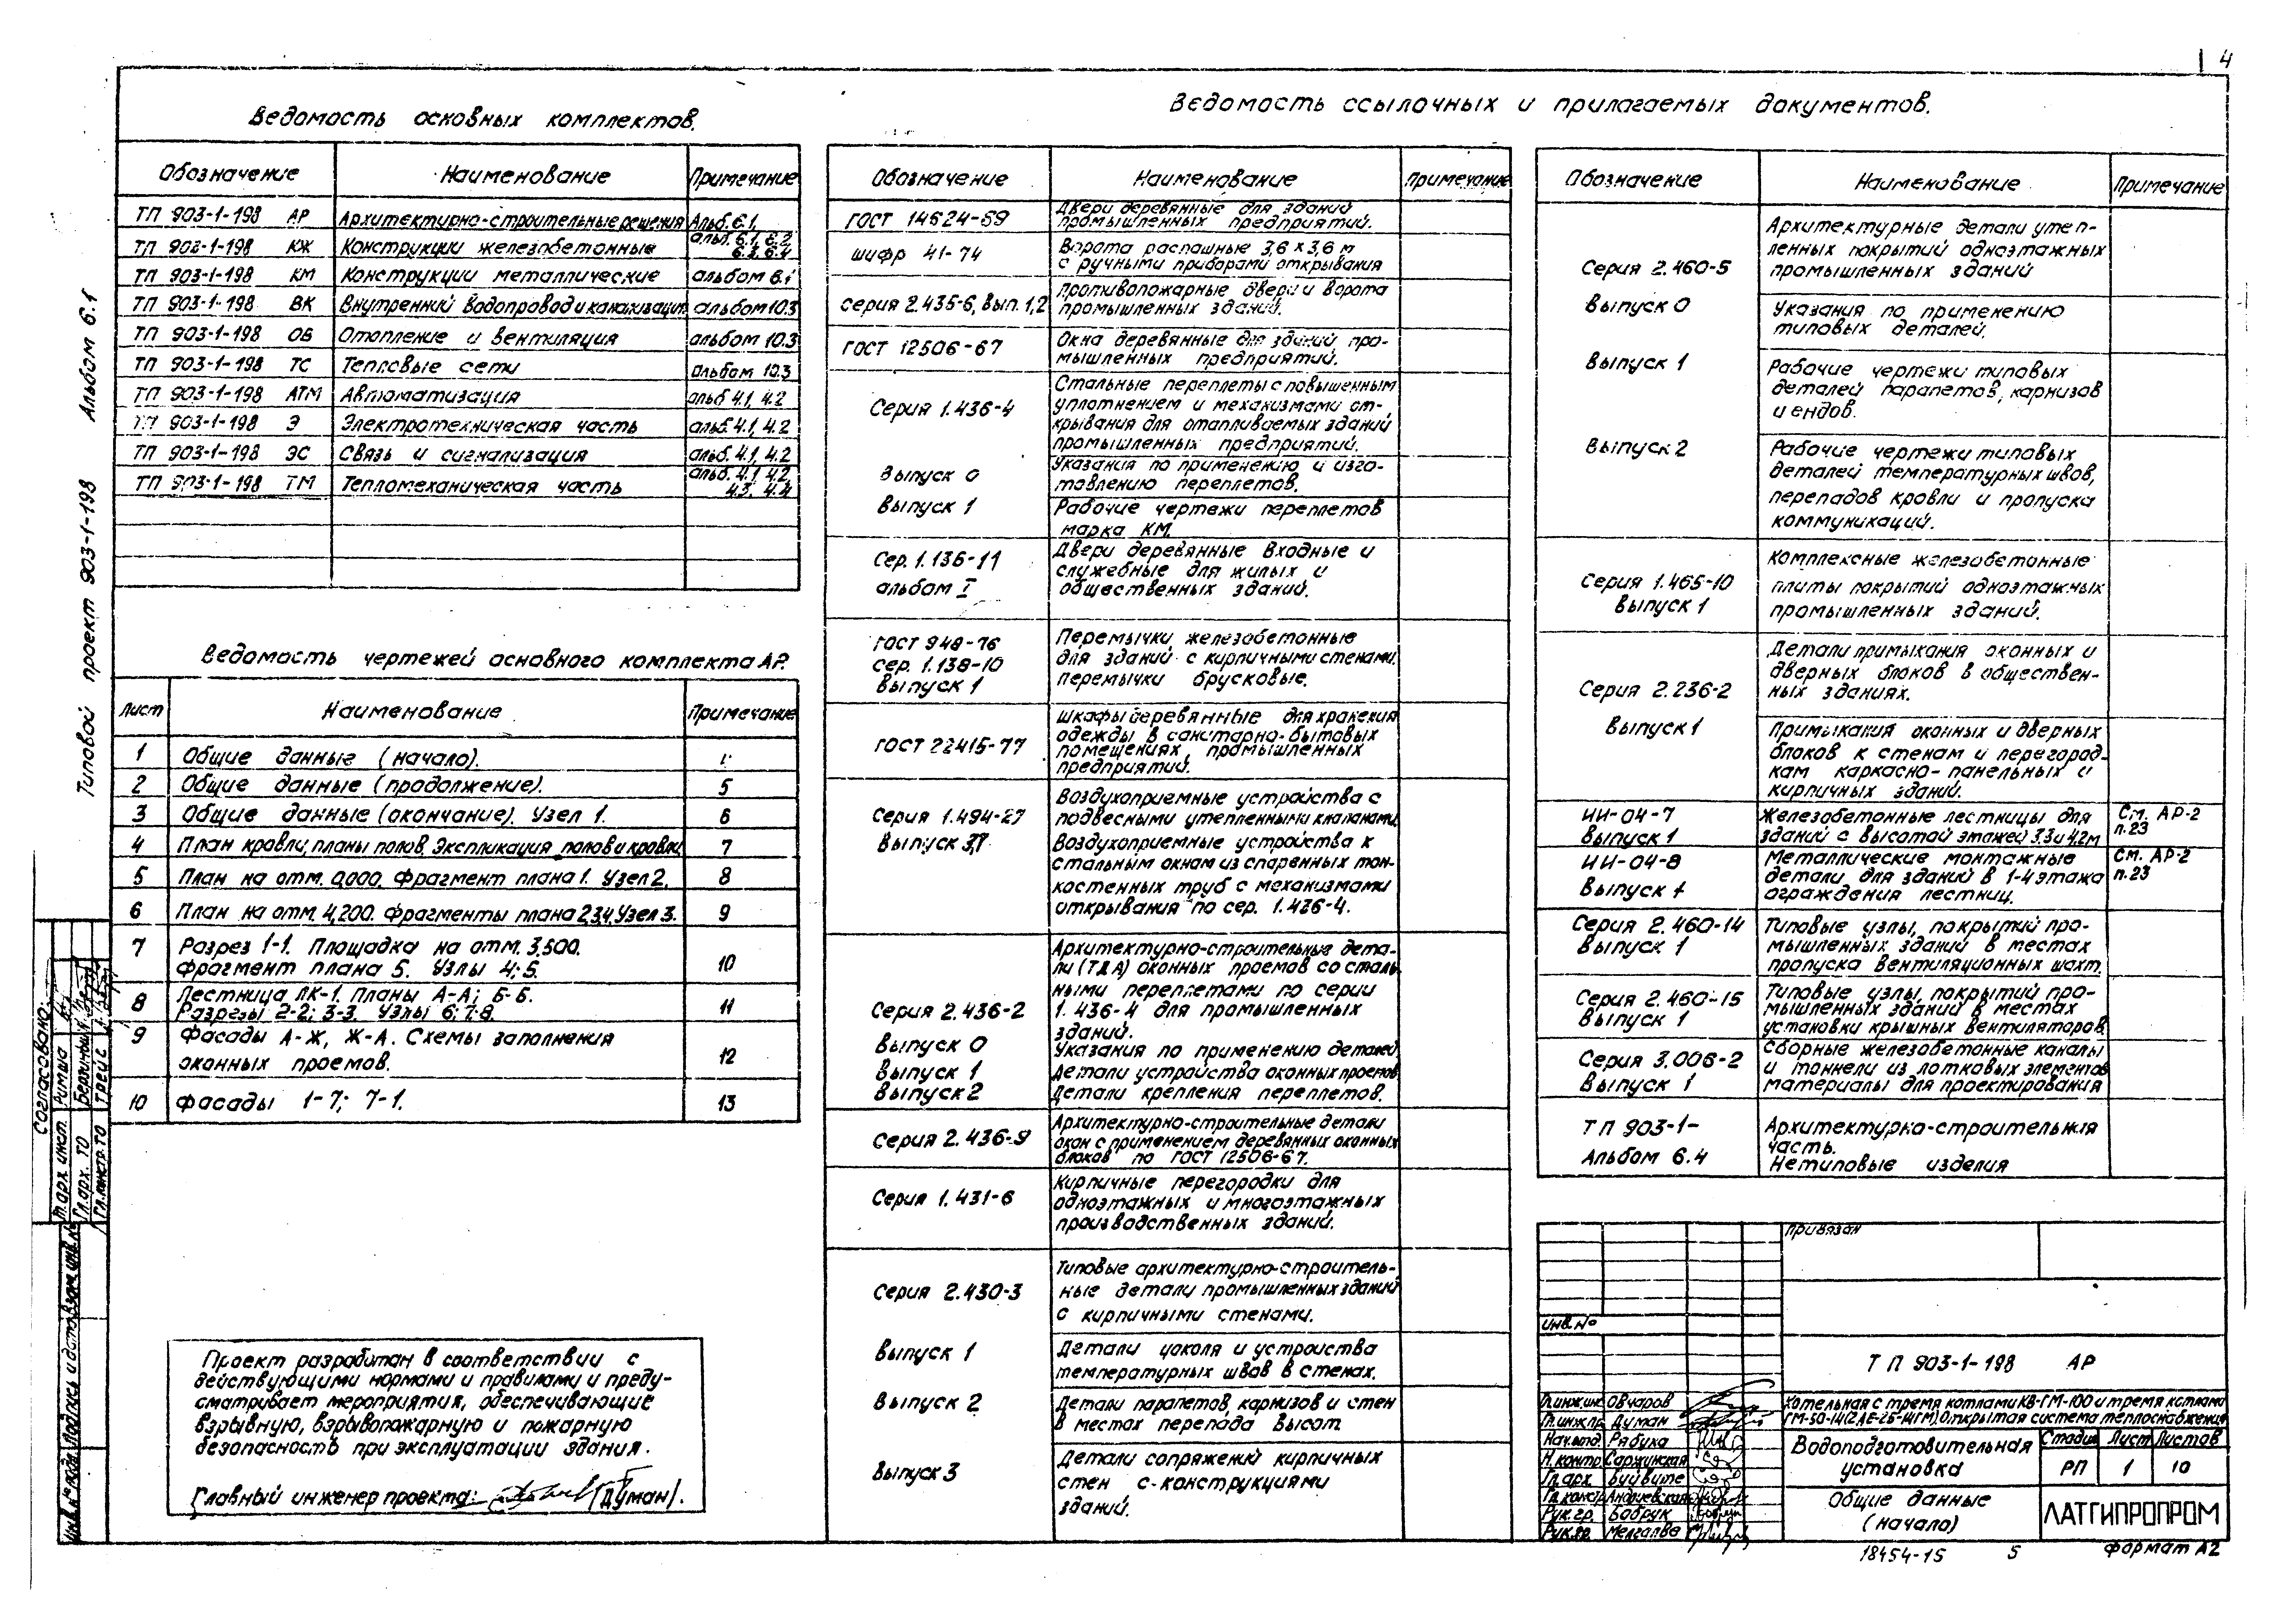 4
Типовой проект 903-1-198 Альбом 6.1
Ведомость основных комплектов.
Обозначение Наименование Примечание
ТП 903-1-198 АР Архитектурно-строительные решения Альб. 6.1,
ТП 903-1-198 КЖ Конструкции железобетонные альб. 6.1, 6.2
6.3, 6.4
ТП 903-1-198 КМ Конструкции металлические альбом 6.1
ТП 903-1-198 ВК Внутренний водопровод и канализация альбом 10.3
ТП 903-1-198 ОВ Отопление и вентиляция альбом 10.3
ТП 903-1-198 ТС Тепловые сети альбом 10.3
ТП 903-1-198 АТМ Автоматизация альб 4.1, 4.2
ТП 903-1-198 Э Электротехническая часть альб. 4.1, 4.2
ТП 903-1-198 ЭС Связь и сигнализация альб. 4.1, 4.2
ТП 903-1-198 ТМ Тепломеханическая часть альб. 4.1, 4.2,
4.3. 4.4
Ведомость чертежей основного комплекта АР.
Лист Наименование Примечание
1 Общие данные (начало).
2 Общие данные (продолжение). 5
3 Общие данные (окончание). Узел 1. 6
4 План кровли, планы полов. Экспликация полов и кровли 7
5 План на отм. 0,000. Фрагмент плана 1. Узел 2. 8
6 План на отм. 4,200. Фрагменты плана 2,3,4. Узел 3. 9
7 Разрез 1-1. Площадка на отм. 3,500.
Фрагмент плана 5. Узлы 4; 5. 10
8 Лестница ЛК-1. Планы А-А; Б-Б.
Разрезы 2-2; 3-3. Узлы 6; 7; 8. 11
9 Фасады А-Ж, Ж-А. Схемы заполнения
оконных проемов. 12
10 Фасады 1-7; 7-1. 13
Проект разработан в соответствии с
действующими нормами и правилами и преду-
сматривает мероприятия, обеспечивающие
взрывную, взрывопожарную и пожарную
безопасность при эксплуатации здания.
Главный инженер проекта: (Думан).
Ведомость ссылочных и прилагаемых документов.
Обозначение Наименование Примечание
ГОСТ 14624-69 Двери деревянные для зданий
промышленных предприятий.
шифр 41-74 Ворота распашные 3,6 х 3,6 м
с ручными приборами открывания
серия 2.435-6, вып. 1,2 Противопожарные двери и ворота
промышленных зданий.
ГОСТ 12506-67 Окна деревянные для зданий про-
мышленных предприятий.
Серия 1.436-4 Стальные переплеты с повышенным
уплотнением и механизмами от-
крывания для отапливаемых зданий
промышленных предприятий.
Выпуск 0 Указания по применению и изго-
товлению переплетов.
Выпуск 1 Рабочие чертежи переплетов
марка КМ.
Сер. 1.136-11 Двери деревянные входные и
служебные для жилых и
альбом I общественных зданий.
ГОСТ 948-76 Перемычки железобетонные
сер. 1.138-10 для зданий с кирпичными стенами.
Выпуск 1 Перемычки брусковые.
ГОСТ 22415-77 Шкафы деревянные для хранения
одежды в санитарно-бытовых
помещениях, промышленных
предприятий.
Серия 1.494-27 Воздухоприемные устройства с
подвесными утепленными клапанами.
Выпуск Воздухоприемные устройства к
стальным окнам из спаренных тон-
костенных труб с механизмами
открывания по сер. 1.436-4.
Серия 2.436-2 Архитектурно-строительные дета-
ли (ТДА) оконных проемов со сталь-
ными переплетами по серии
1.436-4 для промышленных
зданий.
Выпуск 0 Указания по применению деталей.
Выпуск 1 Детали устройства оконных проемов
Выпуск 2 Детали крепления переплетов.
Серия 2.436-9 Архитектурно-строительные детали
окон с применением деревянных оконных
блоков по ГОСТ 12506-67.
Серия 1.431-6 Кирпичные перегородки для
одноэтажных и многоэтажных
производственных зданий.
Серия 2.430-3 Типовые архитектурно-строитель-
ные детали промышленных зданий
с кирпичными стенами.
Выпуск 1 Детали цоколя и устройства
температурных швов в стенах.
Выпуск 2 Детали парапетов, карнизов и стен
в местах перепада высот.
Выпуск 3 Детали сопряжений кирпичных
стен с конструкциями
зданий.
Обозначение Наименование Примечание
Серия 2.460-5 Архитектурные детали утеп-
ленных покрытий одноэтажных
промышленных зданий
Выпуск 0 Указания по применению
типовых деталей.
Выпуск 1 Рабочие чертежи типовых
деталей парапетов, карнизов
и ендов.
Выпуск 2 Рабочие чертежи типовых
деталей температурных швов,
перепадов кровли и пропуска
коммуникаций.
Серия 1.465-10 Комплексные железобетонные
Выпуск 1 плиты покрытий одноэтажных
промышленных зданий.
Серия 2.236-2 Детали примыкания оконных и
дверных блоков в обществен-
ных зданиях.
Выпуск 1 Примыкания оконных и дверных
блоков к стенам и перегород-
кам каркасно-панельных и
кирпичных зданий.
ИИ-04-7 Железобетонные лестницы для См. АР-2
Выпуск 1 зданий с высотой этажей 3.3 и 4.2м п.23
ИИ-04-8 Металлические монтажные См. АР-2
детали для зданий в 1-4 этажа п.23
Выпуск 1 ограждения лестниц.
Серия 2.460-14 Типовые узлы, покрытий про-
Выпуск 1 мышленных зданий в местах
пропуска вентиляционных шахт.
Серия 2.460-15 Типовые узлы, покрытий про-
Выпуск 1 мышленных зданий в местах
установки крышных вентиляторов.
Серия 3.006-2 Сборные железобетонные каналы
и тоннели из лотковых элементов
Выпуск 1 материалы для проектирования
ТП 903-1- Архитектурно-строительная
часть.
Альбом 6.4 Нетиповые изделия
Привязан
Инв. №
ТП 903-1-198 АР
Котельная с тремя котлами КВ-ГМ-100 и тремя котлами
ГМ-50-14 (2ДЕ-25-14ГМ) Открытая система теплоснабжения
Водоподготовительная
установка
Стадия Лист Листов
РП 1 10
Общие данные
(начало)
ЛАТГИПРОПРОМ
Гл.инж.ин Овчаров
Гл.инж.пр. Думан
Нач.отд. Рябуха
Н.контр. Саржинская
Гл.арх. Буйвите
Гл.констр. Андриевская
Рук.гр. Бабрук
Рук.гр. Мелгалве
18454-15 5 Формат А2
Согласовано:
Гл.арх. инст. Римша
Гл.арх. ТО
Гл.констр. ТО Трейс
Инв. № подл. Подпись и дата Взам. инв. №